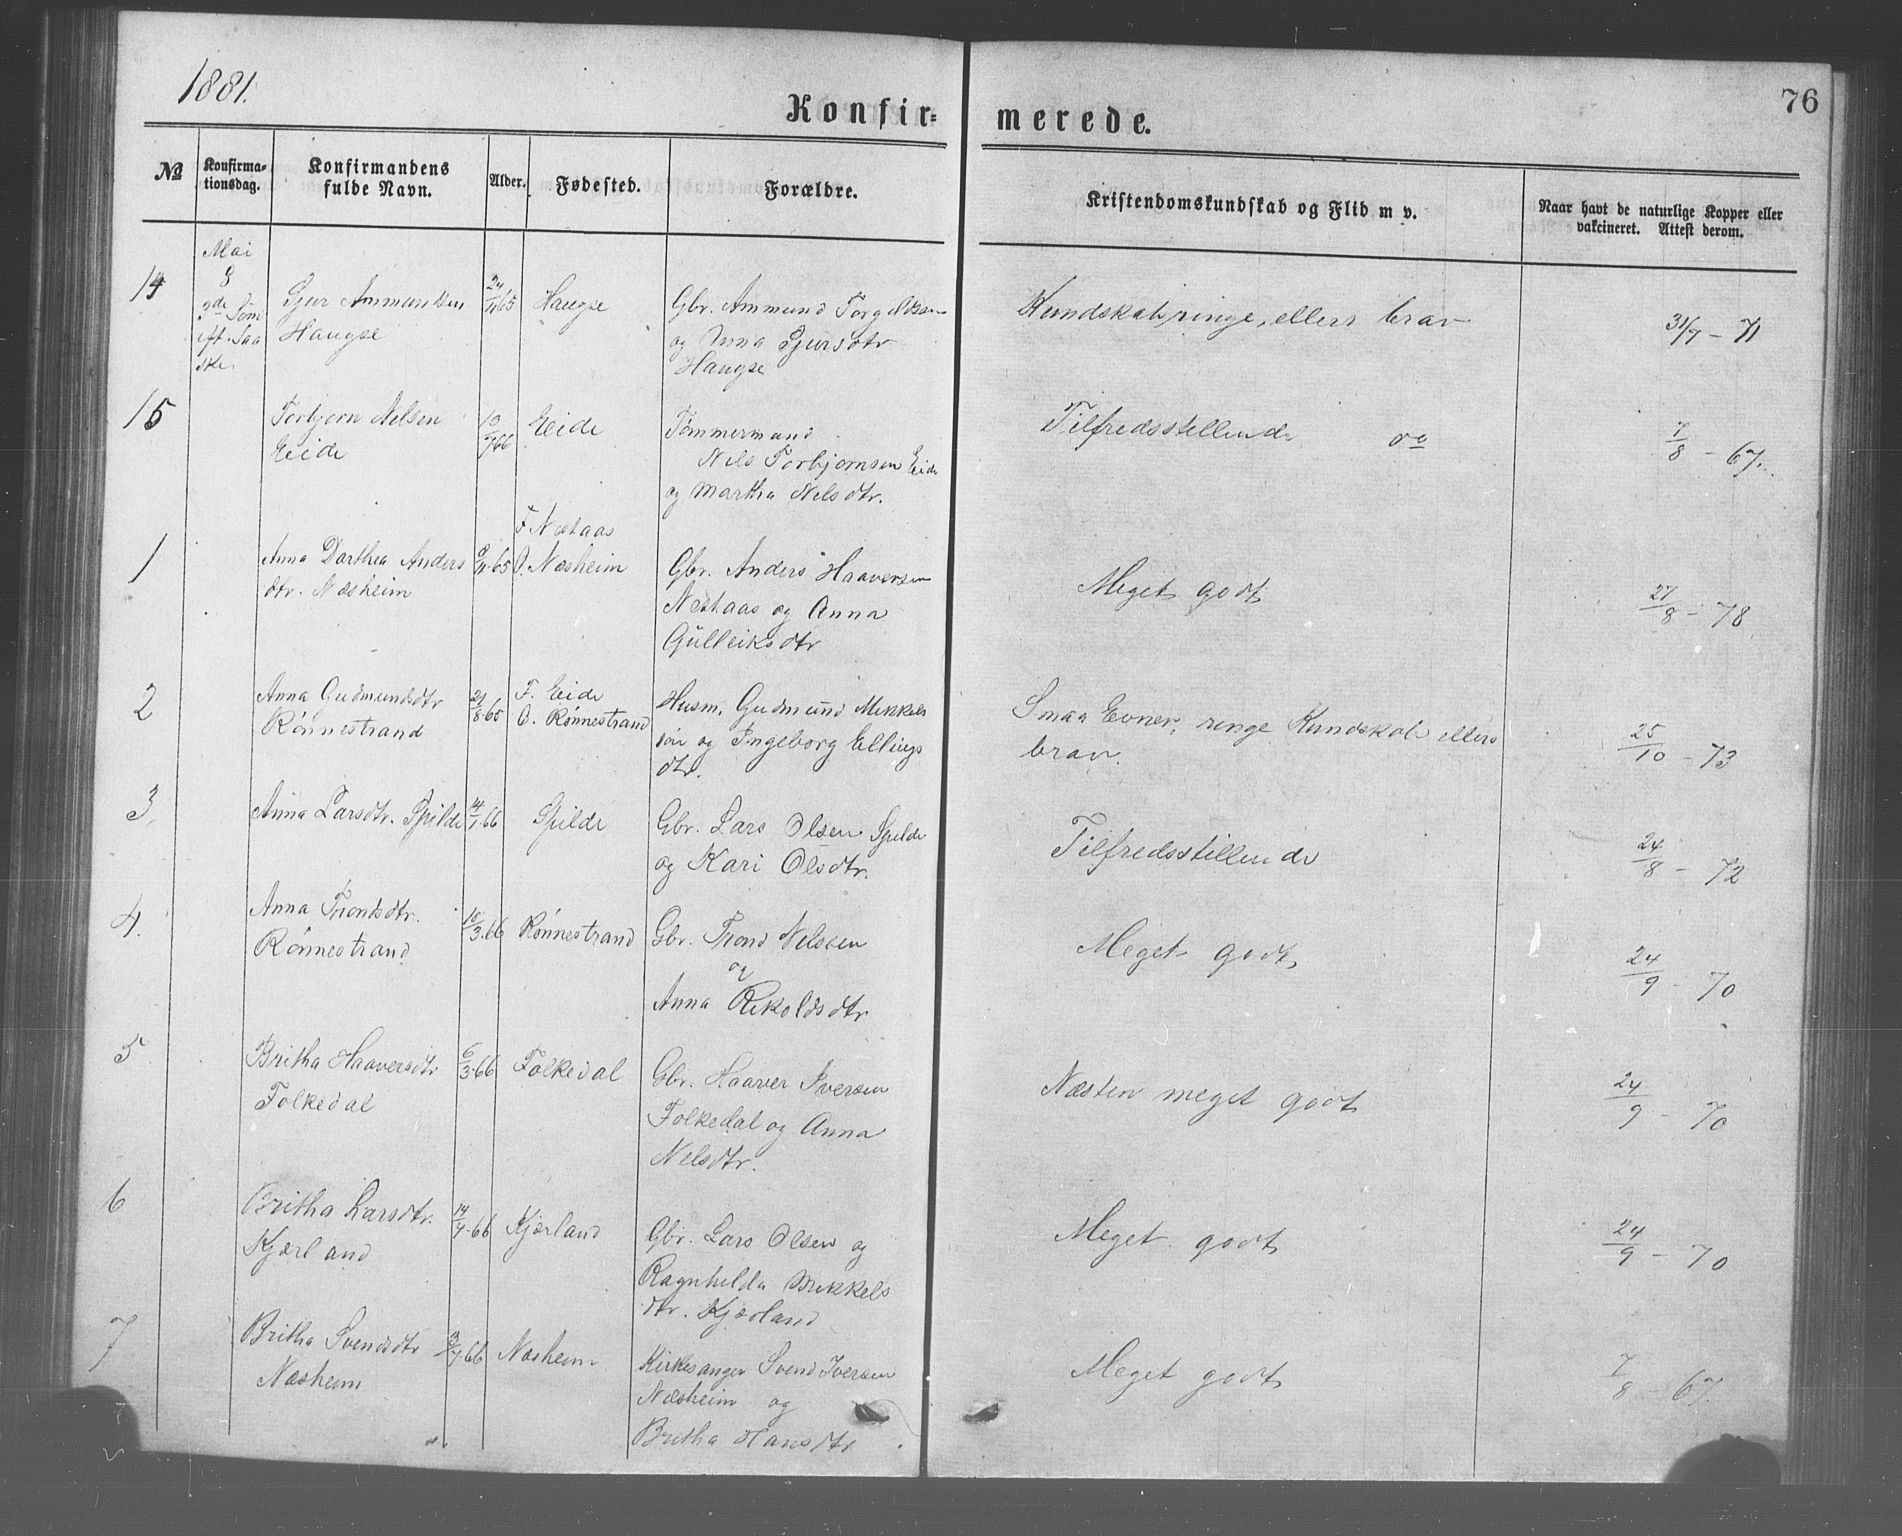 1881.
76
Konfir=
merede.
№
Konfirma-
tionsdag.
Konfirmandens
fulde Navn.
Alder.
Fødested.
Forældre.
Kristendomskundskab og Flid m v.
Naar havt de naturlige Kopper eller
vakcineret. Attest derom.
Mai
8
2de Søn
eft. Paa
ske.
14
Gjur Ammundsen
Haugse
24/11 65
Haugse
Gbr. Ammund Torgilsen
og Anna Gjursdtr
Haugse
Kundskab ringe, ellers brav
31/7 - 71
15
Torbjorn Nelsen
Eide
10/7 66
Eide
Tømmermand
Nels Torbjornsen Eide
og Martha Nelsdtr.
Tilfredsstillende do
7/8 - 67.
1
Anna Dorthea Anders
dtr. Næsheim
9/11-65
F. Nestaas
O. Næsheim
Gbr. Anders Haaversen
Nestaas og Anna
Gulleiksdtr
Meget godt
27/8 - 78
2
Anna Gudmundsdtr
Rønnestrand
21/8-65
F. Eide
O. Rønnestrand
Husm. Gudmund Mikkel
sen og Ingeborg Ellings
dtr.
Smaa Evner, ringe Kundskab ellers
brav.
25/10 - 73
3
Anna Larsdtr. Spilde
14/1-66
Spilde
Gbr. Lars Olsen Spilde
og Kari Olsdtr.
Tilfredsstillende
24/8 - 72
4.
Anna Trondsdtr.
Rönnestrand
10/3-66
Rønnestrand
Gbr. Trond Nelssen
og
Anna Rikoldsdtr
Meget godt
24/9 - 70
5
Britha Haaversdtr
Folkedal
6/3-66
Folkedal
Gbr. Haaver Iversen
Folkedal og Anna
Nelsdtr.
Næsten meget godt
24/9 - 70
6
Britha Larsdtr.
Kjærland
14/4-66
Kjærland
Gbr. Lars Olsen og
Ragnhilda Mikkels
dtr. Kjærland
Meget godt
24/9 - 70
7
Britha Svendsdtr
Næsheim
3/7-66
Næsheim
Kirkesanger Svend Iversen
Næsheim og
Britha Hansdtr
Meget godt
7/8 - 67.